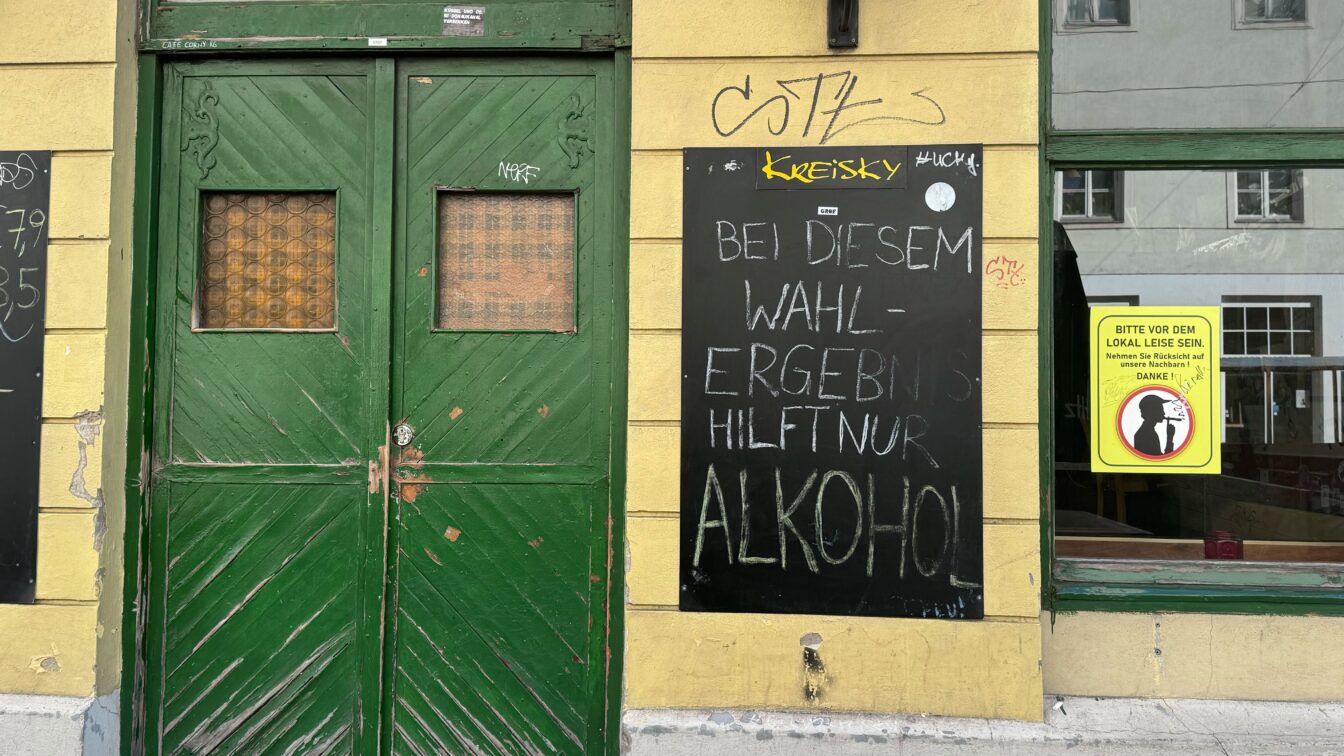 CAFE CORNY K6
NERF
7,9
3,5
STZ
KREISKY
#UCKY.
GROF
BEI DIESEM
WAHL-
ERGEBNIS
HILFT NUR
ALKOHOL
BITTE VOR DEM
LOKAL LEISE SEIN.
Nehmen Sie Rücksicht auf
unsere Nachbarn !
DANKE !